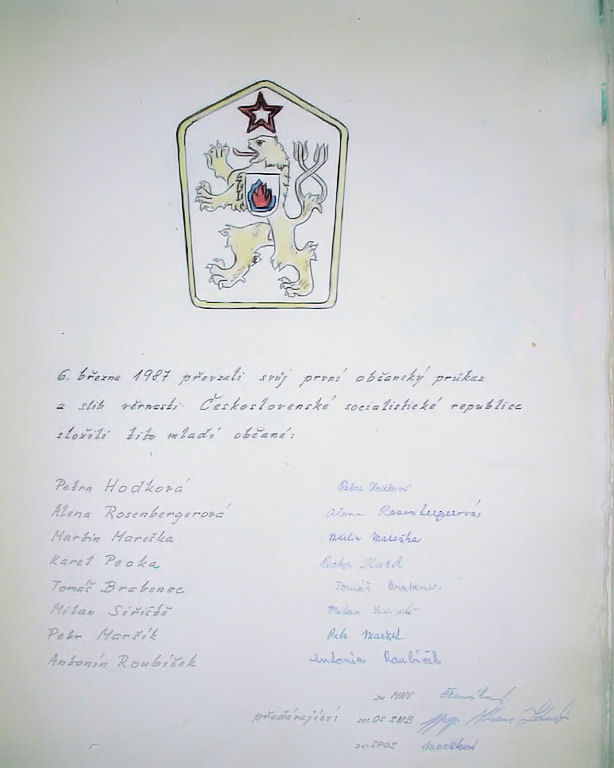 6. března 1987 převzali svůj první občanský průkaz
a slib věrnosti Československé socialistické republice
složili tito mladí občané:
Petra Hodková Petra Hodková
Alena Rosenbergerová Alena Rosenbergerová
Martin Mareška Martin Mareška
Karel Pecka Pecka Karel
Tomáš Brabenec Tomáš Brabenec
Milan Siřiště Milan Siřiště
Petr Maržík Petr Maržík
Antonín Roubíček Antonín Roubíček
za MNV
předávající: za OS SNB
za SPOZ